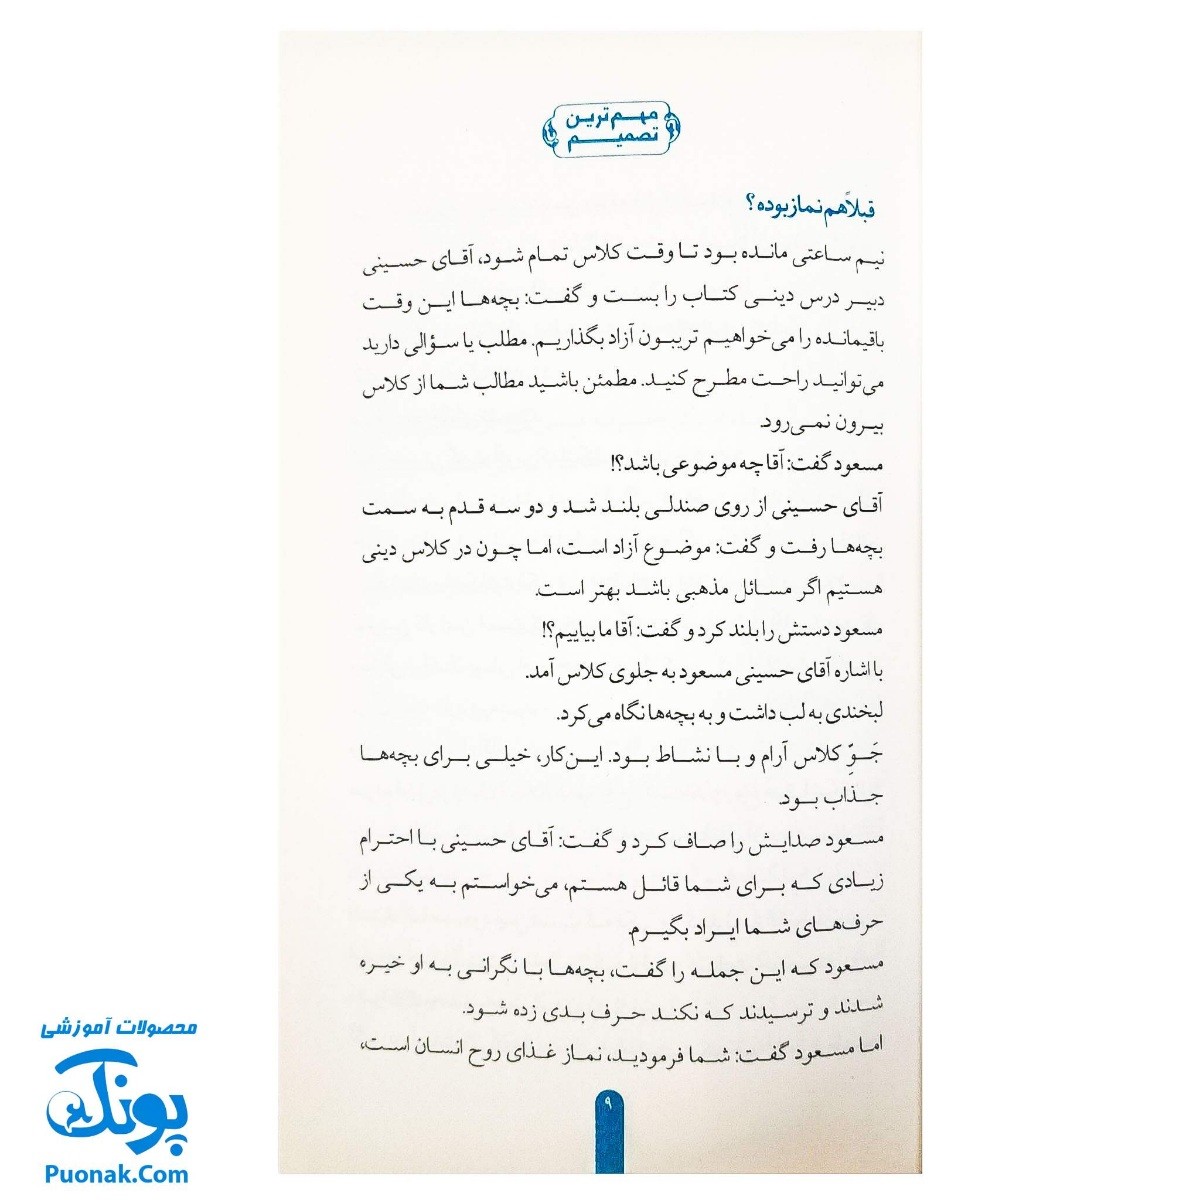 مهم‌ترین
تصمیم
قبلاً هم نماز بوده؟
نیم ساعتی مانده بود تا وقت کلاس تمام شود، آقای حسینی
دبیر درس دینی کتاب را بست و گفت: بچه‌ها این وقت
باقیمانده را می‌خواهیم تریبون آزاد بگذاریم. مطلب یا سؤالی دارید
می‌توانید راحت مطرح کنید. مطمئن باشید مطالب شما از کلاس
بیرون نمی‌رود.
مسعود گفت: آقا چه موضوعی باشد؟!
آقای حسینی از روی صندلی بلند شد و دو سه قدم به سمت
بچه‌ها رفت و گفت: موضوع آزاد است، اما چون در کلاس دینی
هستیم اگر مسائل مذهبی باشد بهتر است.
مسعود دستش را بلند کرد و گفت: آقا ما بیاییم؟!
با اشاره آقای حسینی مسعود به جلوی کلاس آمد.
لبخندی به لب داشت و به بچه‌ها نگاه می‌کرد.
جَوِّ کلاس آرام و با نشاط بود. این‌کار، خیلی برای بچه‌ها
جذاب بود.
مسعود صدایش را صاف کرد و گفت: آقای حسینی با احترام
زیادی که برای شما قائل هستم، می‌خواستم به یکی از
حرف‌های شما ایراد بگیرم.
مسعود که این جمله را گفت، بچه‌ها با نگرانی به او خیره
شدند و ترسیدند که نکند حرف بدی زده شود.
اما مسعود گفت: شما فرمودید، نماز غذای روح انسان است،
۹
محصولات آموزشی
پونک
Puonak.Com